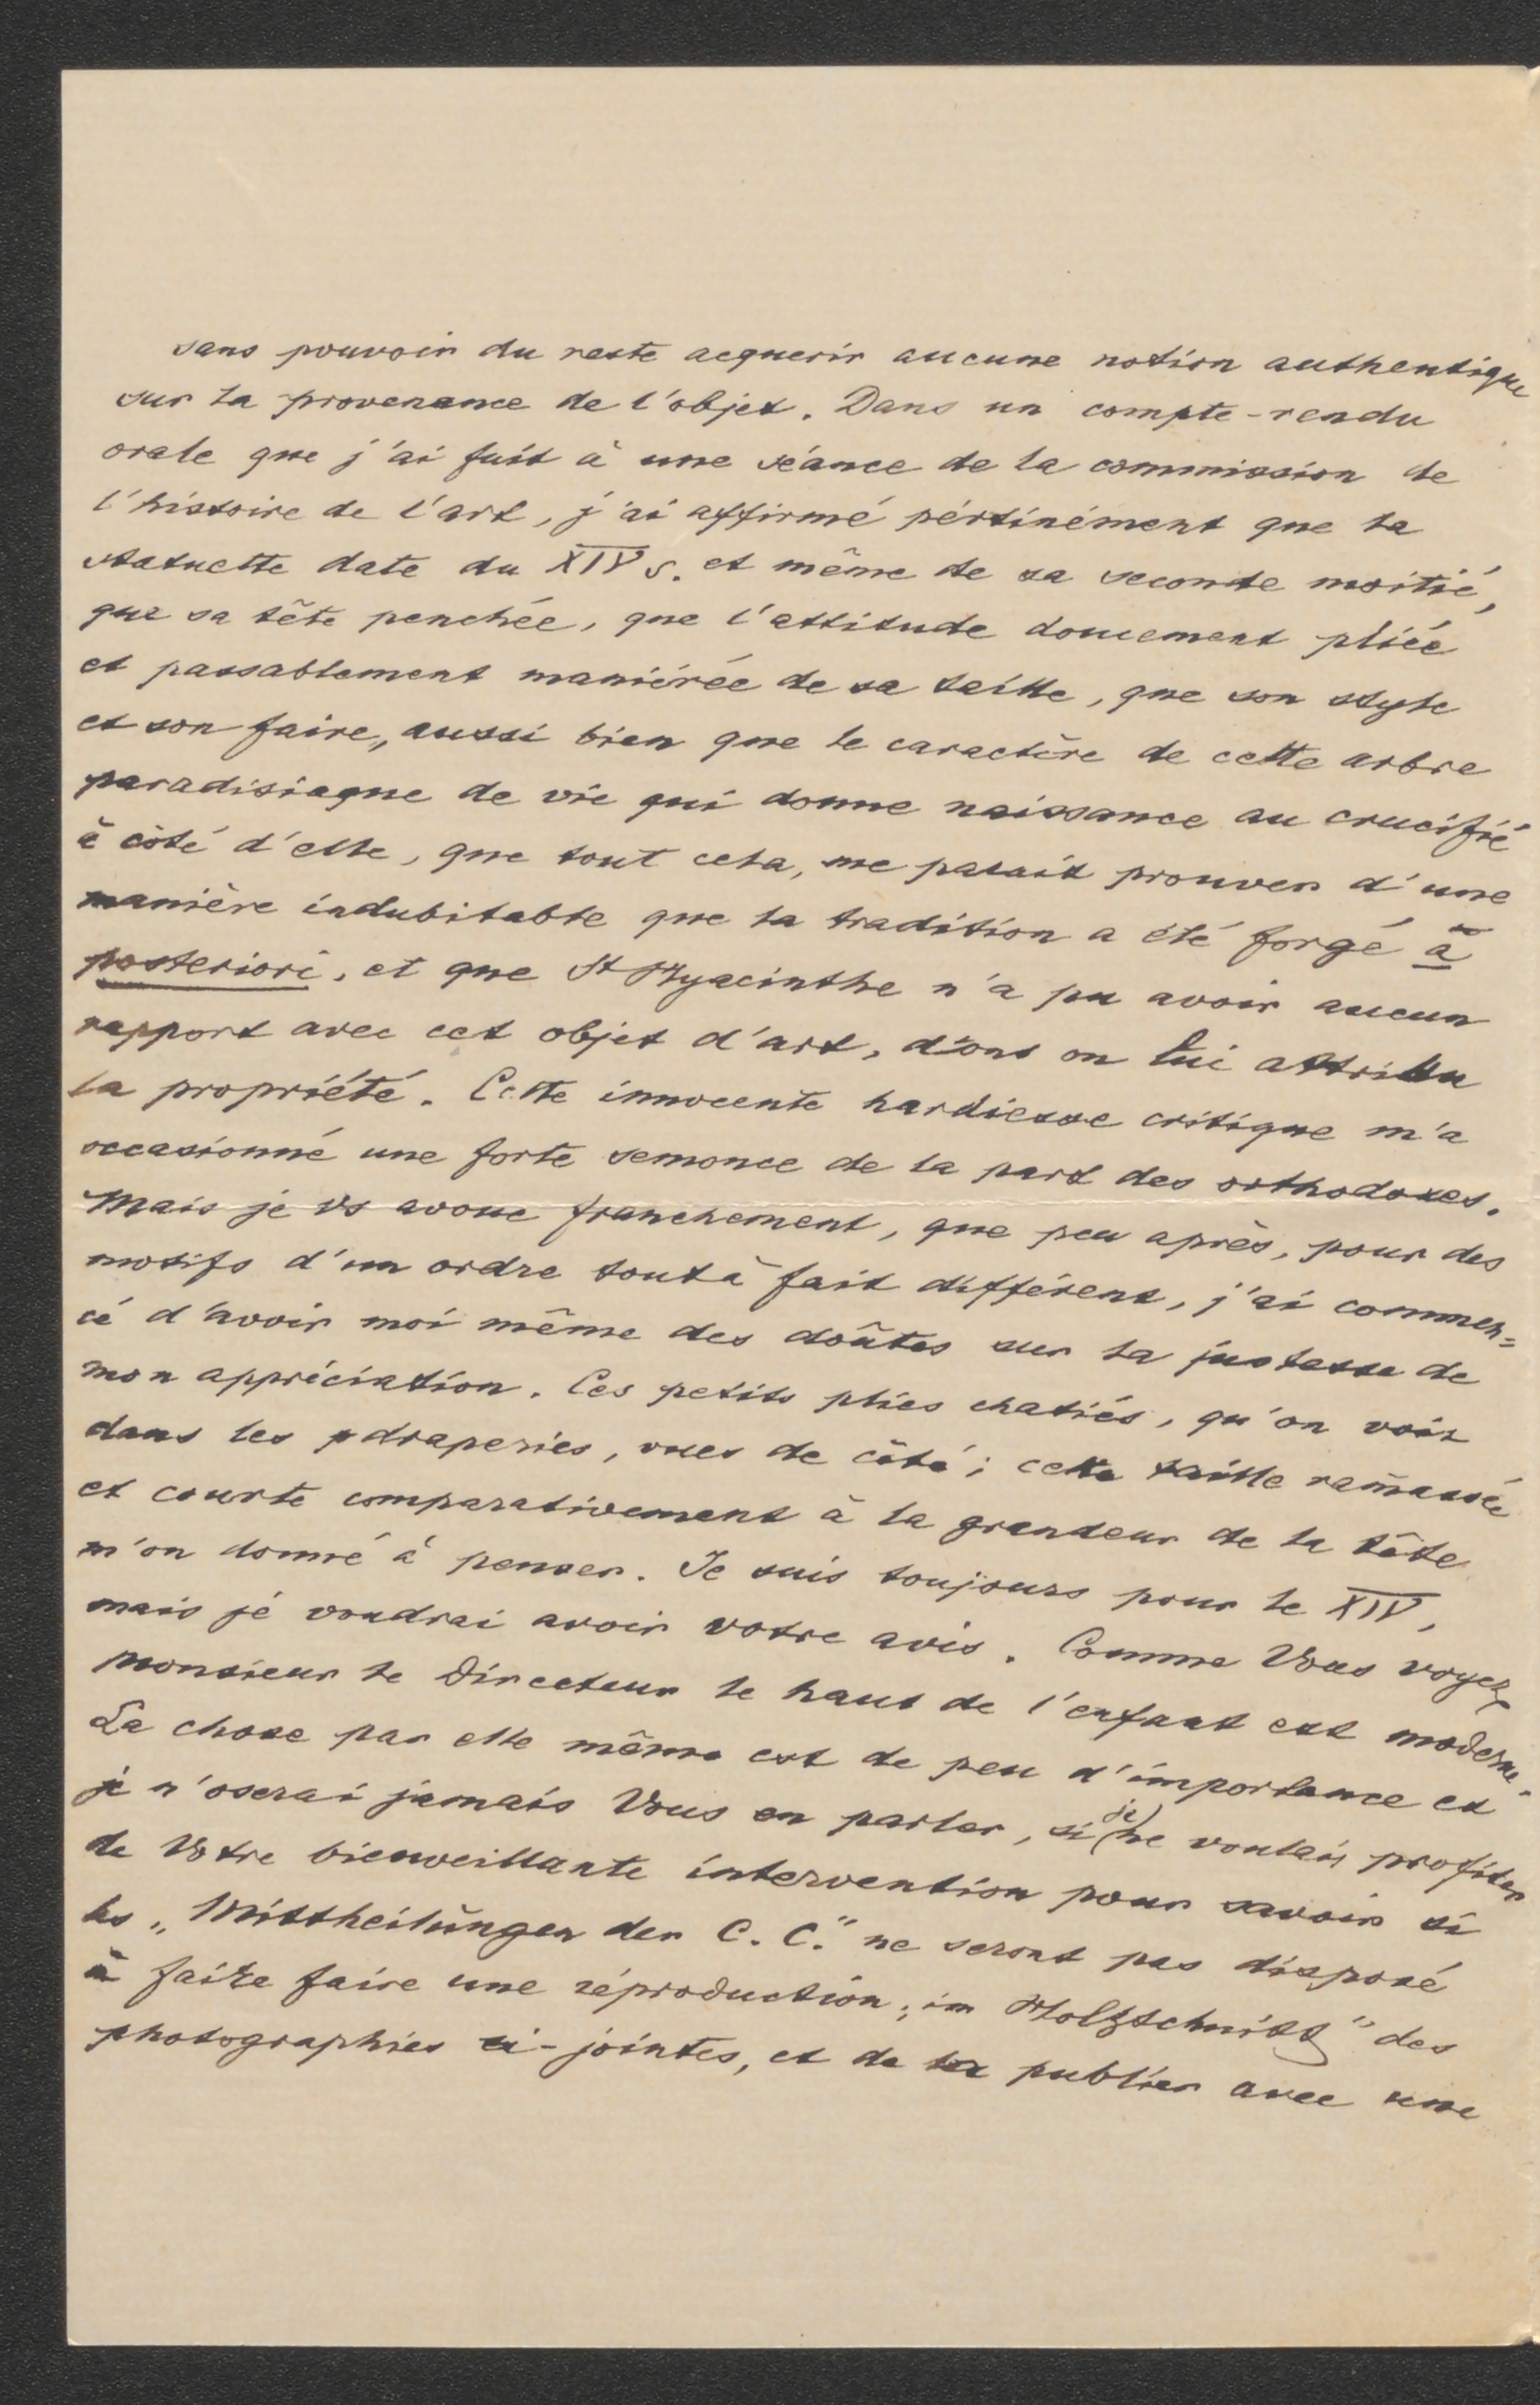 sans pouvoir du reste acquerir aucune notion authentique
sur la provenance de l'objet. Dans un compte-rendu
orale que j'ai fait à une séance de la commission de
l'histoire de l'art, j'ai affirmé pértinément que la
statuette date du XIV s. et même de sa seconde moitié,
que sa tête penchée, que l'attitude doucement pliée
et passablement maniérée de sa taille, que son style
et son faire, aussi bien que le caractère de cette arbre
paradisiaque de vie qui donne naissance au crucifié
à côté d'elle, que tout cela, me parait prouver d'une
manière indubitable que la tradition a été forgé à
posteriori, et que St Hyacinthe n'a pu avoir aucun
rapport avec cet objet d'art, d'ont on lui attribu
la propriété. Cette innocente hardiesse critique m'a
occasionné une forte semonce de la part des orthodoxes.
Mais je vs avoue franchement, que peu après, pour des
motifs d'un ordre tout à fait différent, j'ai commen=
cé d'avoir moi même des doûtes sur la justesse de
mon appréciation. Ces petits plies chatiés, qu'on voit
dans les draperies, vues de côté; cette taille ramassée
et courte comparativement à la grandeur de la tête
m'on donné à penser. Je suis toujours pour le XIV,
mais je voudrai avoir votre avis. Comme Vous voyez
Monsieur le Directeur le haut de l'enfant est moderne.
La chose par elle même est de peu d'importance et
je n'oserai jamais Vous en parler, si je ne voulais profiter
de Votre bienveillante intervention pour savoir si
les „Mittheilŭngen der C. C." ne seront pas disposé
à faire faire une réproduction „im Holzschnitt" des
photographies ci-jointes, et de la publier avec une